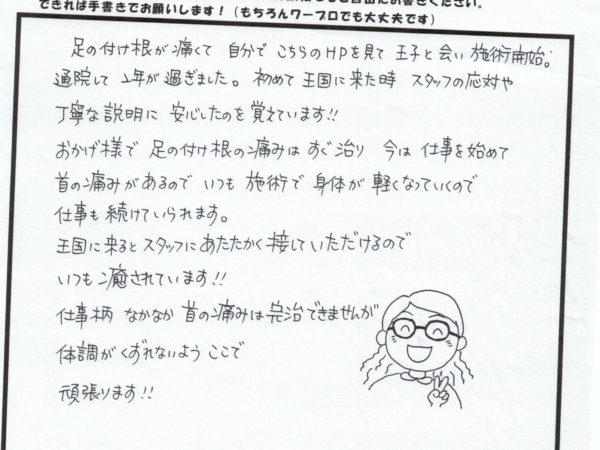 できれば手書きでお願いします！（もちろんワープロでも大丈夫です）
足の付け根が痛くて 自分で こちらのHPを見て 王子と会い 施術開始。
通院して 2年が過ぎました。初めて王国に来た時 スタッフの応対や
丁寧な説明に 安心したのを覚えています!!
おかげ様で 足の付け根の痛みは すぐ治り 今は 仕事を始めて
首の痛みがあるので いつも 施術で 身体が 軽くなっていくので
仕事も 続けていられます。
王国に来ると スタッフに あたたかく 接していただけるので
いつも 癒されています!!
仕事柄 なかなか 首の痛みは完治できませんが
体調がくずれないよう ここで
頑張ります!!